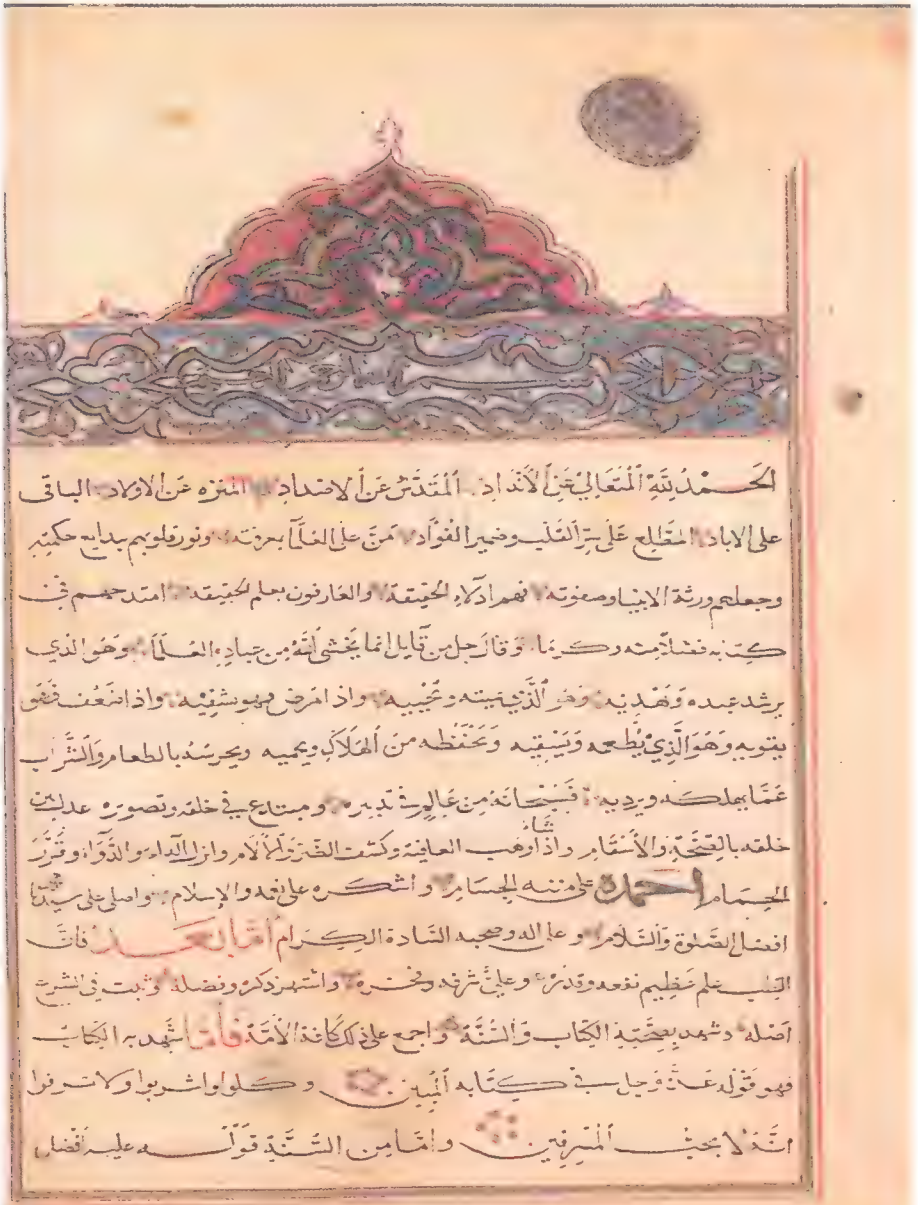 بسم الله الرحمن الرحيم
الحمد لله المتعالي عن الأنداد المتقدس عن الاضداد المنزه عن الاولاد الباقي
على الاباد المطلع على سر القلب وضمير الفواد من على العلما بمعرفته ونور قلوبهم ببدايع حكمته
وجعلهم ورثة الانبيا وصفوته فهم ادلاء الحقيقة والعارفون بعلم الحقيقة امتدحهم في
كتابه فضلا منه وكرما وقال جل من قايل انما يخشى الله من عباده العلما وهو الذي
يرشد عبده ويهديه وهو الذي يميته ويحييه واذا مرض فهو يشفيه واذا ضعف فهو
يقويه وهو الذي يطعمه ويسقيه ويحفظه من الهلاك ويحميه ويحرسه بالطعام والشراب
عما يهلكه ويرديه فسبحانه من عالم في تدبيره ومبتدع في خلقه وتصويره عدل بين
خلقه بالصحة والأسقام واذا شاء وهب العافية وكشف الضر والآلام وانزل الداء والدواء وقدر
الحمام احمده على مننه الجسام واشكره على نعمه والإسلام واصلى على سيدنا محمد
افضل الصلوة والسلام وعلى اله وصحبه السادة الكرام أما بعد فان
الطب علم عظيم نفعه وقدره وعلى شرفه وفخره واشتهر ذكره وفضله وثبت في الشرع
اصله وشهد بصحته الكتاب والسنة واجمع على ذلك كافة الأمة فأما شهد به الكتاب
فهو قوله عز وجل في كتابه المبين وكلوا واشربوا ولا تسرفوا
انه لا يحب المسرفين واما من السنة قوله عليه افضل